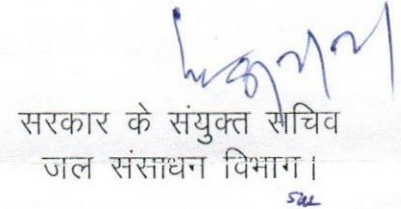 सरकार के संयुक्त सचिव
जल संसाधन विभाग।